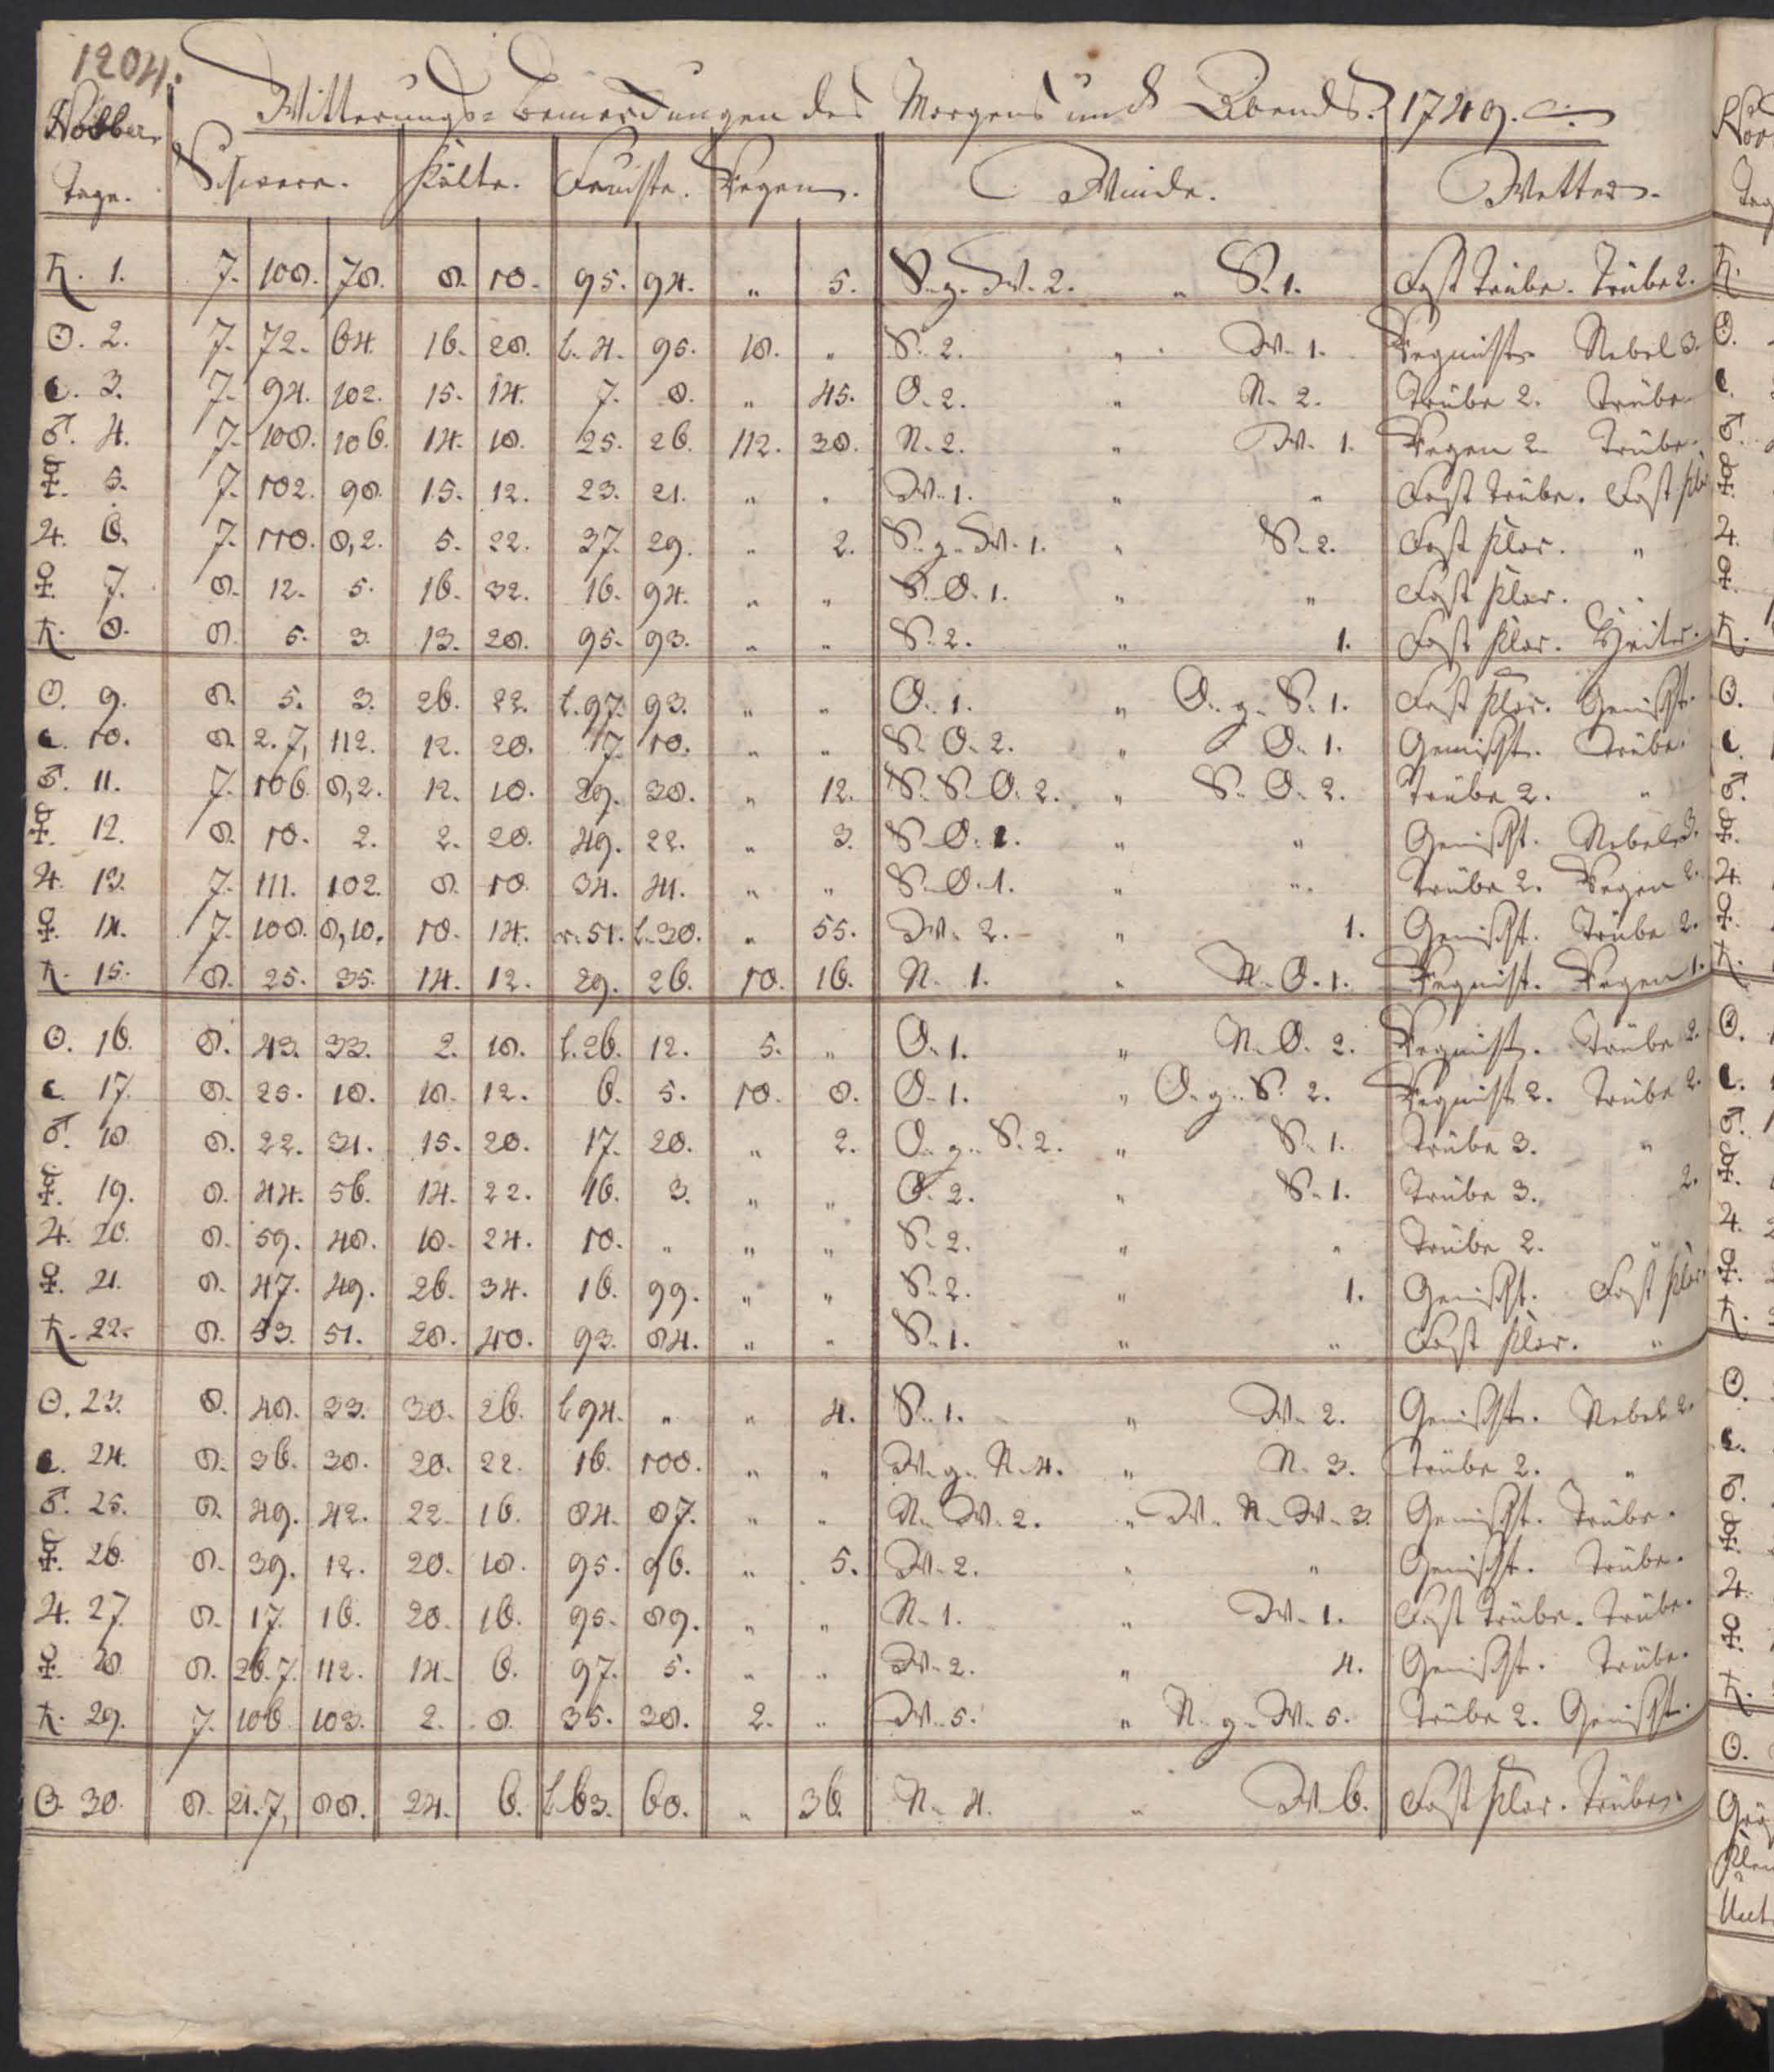 1204.
Novber. Witterungs-Bemerckungen des Morgens und Abends. 1749.
Tage. Schwere. Kälte. Feuchte. Regen. Winde. Wetter.
♄. 1. 7. 108. 78. 8. 18. 95. 94. " 5. S. g. W. 2. " S. 1. Fast Trübe. Trübe 2.
☉. 2. 7. 72. 64. 16. 28. l. 4. 95. 18. " S. 2. " W. 1. Regnicht. Nebel 3.
☾. 3. 7. 94. 102. 15. 14. 7. 8. " 45. O. 2. " N. 2. Trübe 2. Trübe
♂. 4. 7. 108. 106. 14. 18. 25. 26. 112. 38. N. 2. " W. 1. Regen 2. Trübe.
☿. 5. 7. 102. 98. 15. 12. 23. 21. " " W. 1. " " Fast Trübe. Fast klar
♃. 6. 7. 110. 8, 2. 5. 22. 37. 29. " 2. S. g. W. 1. " S. 2. Fast klar. "
♀. 7. 8. 12. 5. 16. 32. 16. 94. " " S. O. 1. " " Fast klar. "
♄. 8. 8. 5. 3. 13. 28. 95. 93. " " S. 2. " 1. Fast klar. Heiter.
☉. 9. 8. 5. 3. 26. 22. l. 97. 93. " " O. 1. " O. g. S. 1. Fast klar. Gemischt.
☾. 10. 8. 2. 7, 112. 12. 20. 7. 10. " " S. O. 2. " O. 1. Gemischt. Trübe.
♂. 11. 7. 106. 8, 2. 12. 10. 29. 38. " 12. S. S. O. 2. " S. O. 2. Trübe 2. "
☿. 12. 8. 10. 2. 2. 20. 49. 22. " 3. S. O. 1. " " Gemischt. Nebel 3.
♃. 13. 7. 111. 102. 8. 10. 34. 41. " " S. O. 1. " " Trübe 2. Regen 2.
♀. 14. 7. 108. 8, 10. 10. 14. r. 51. l. 30. " 55. W. 2. " 1. Gemischt. Trübe 2.
♄. 15. 8. 25. 35. 14. 12. 29. 26. 10. 16. N. 1. " N. O. 1. Regnicht. Regen 1.
☉. 16. 8. 43. 33. 2. 18. l. 26. 12. 5. " O. 1. " N. O. 2. Regnicht. Trübe 2.
☾. 17. 8. 25. 18. 18. 12. 6. 5. 10. 8. O. 1. " O. g. S. 2. Regnicht 2. Trübe 2.
♂. 18. 8. 22. 31. 15. 20. 17. 20. " 2. O. g. S. 2. " S. 1. Trübe 3. "
☿. 19. 8. 44. 56. 14. 22. 16. 3. " " O. 2. " S. 1. Trübe 3. 2.
♃. 20. 8. 59. 48. 18. 24. 10. " " " S. 2. " " Trübe 2. "
♀. 21. 8. 47. 49. 26. 34. 16. 99. " " S. 2. " 1. Gemischt. Fast klar.
♄. 22. 8. 53. 51. 28. 40. 93. 84. " " S. 1. " " Fast klar. "
☉. 23. 8. 48. 33. 30. 26. l. 94. " " 4. S. 1. " W. 2. Gemischt. Nebel 2.
☾. 24. 8. 36. 38. 20. 22. 16. 100. " " W. g. N. 4. " N. 3. Trübe 2. "
♂. 25. 8. 49. 42. 22. 16. 84. 87. " " N. W. 2. " W. N. W. 3. Gemischt. Trübe.
☿. 26. 8. 39. 12. 20. 18. 95. 96. " 5. W. 2. " " Gemischt. Trübe.
♃. 27. 8. 17. 16. 20. 16. 95. 89. " " N. 1. " W. 1. Fast Trübe. Trübe.
♀. 28. 8. 26. 7. 112. 14. 6. 97. 5. " " W. 2. " 4. Gemischt. Trübe.
♄. 29. 7. 106. 103. 2. 8. 35. 38. 2. " W. 5. " N. g. W. 5. Trübe 2. Gemischt.
☉. 30. 8. 21. 7, 88. 24. 6. l. 63. 60. " 36. N. 4. " W. 6. Fast klar. Trübe.